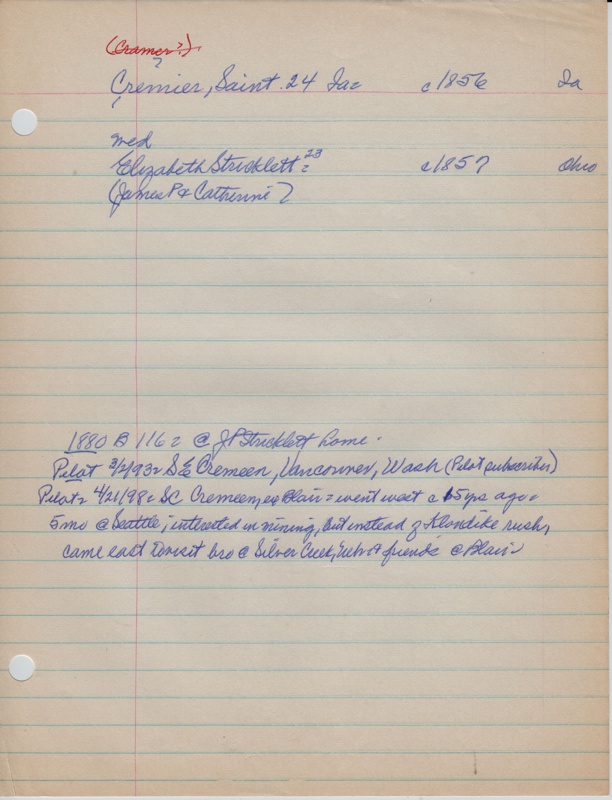 (Cramer?)
?
Cremier, Saint. 24 Ia= c1856 Ia
wed
Elizabeth Stricklett = 23 c1857 Ohio
(James P & Catherine)
1880 B 116= @ JP Stricklett home.
Pilot 3/2/93= SE Cremeen, Vancouver, Wash (Pilot subscriber)
Pilot= 4/21/98= SC Cremeen, ex Blair= went west c 15 yrs ago=
5 mo @ Seattle; interested in mining, but instead of Klondike rush,
came east to visit bro @ Silver Creek, Neb & friends @ Blair=